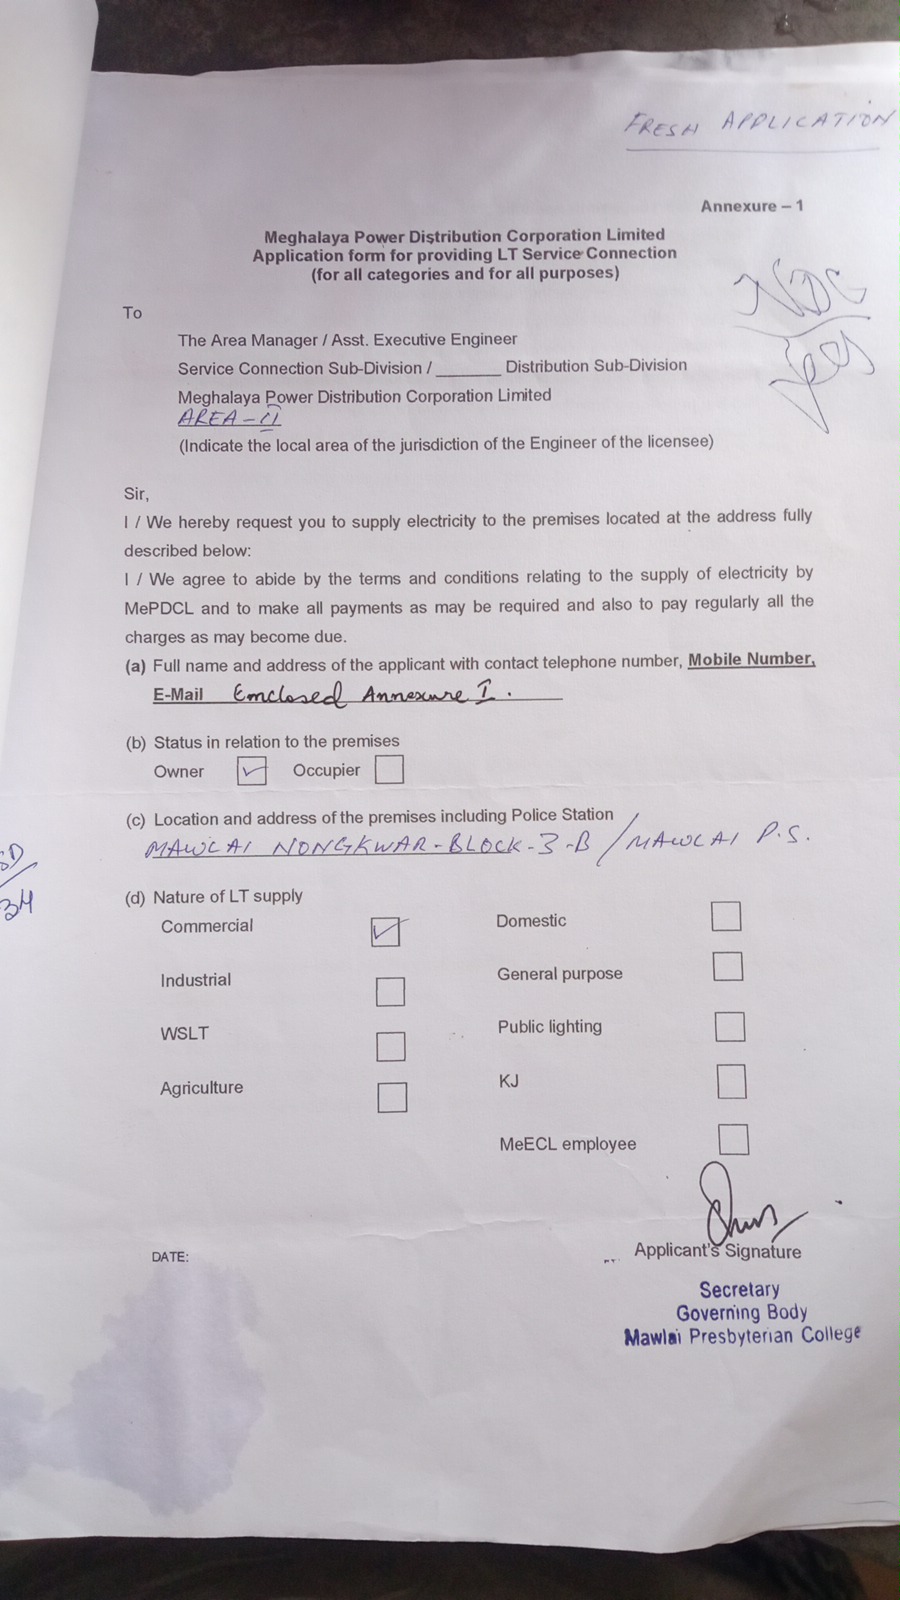 FRESH APPLICATION
Annexure – 1
Meghalaya Power Distribution Corporation Limited
Application form for providing LT Service Connection
(for all categories and for all purposes)
NDC
To
The Area Manager / Asst. Executive Engineer
Service Connection Sub-Division / _______ Distribution Sub-Division
Meghalaya Power Distribution Corporation Limited
AREA-II
(Indicate the local area of the jurisdiction of the Engineer of the licensee)
Sir,
I / We hereby request you to supply electricity to the premises located at the address fully
described below:
I / We agree to abide by the terms and conditions relating to the supply of electricity by
MePDCL and to make all payments as may be required and also to pay regularly all the
charges as may become due.
(a) Full name and address of the applicant with contact telephone number, Mobile Number,
E-Mail Enclosed Annexure I.
(b) Status in relation to the premises
Owner Occupier
(c) Location and address of the premises including Police Station
MAWLAI NONGKWAR-BLOCK-3-B / MAWLAI P.S.
(d) Nature of LT supply
Commercial Domestic
Industrial General purpose
WSLT Public lighting
Agriculture KJ
MeECL employee
34
DATE:
Applicant's Signature
Secretary
Governing Body
Mawlai Presbyterian College